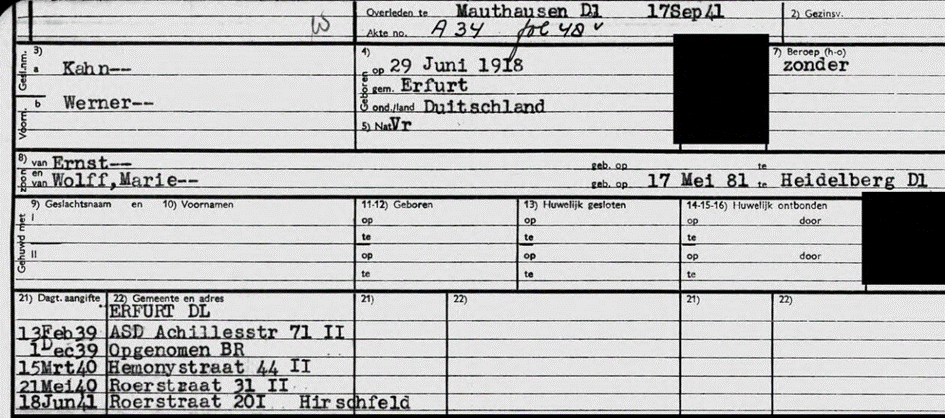 Overleden te Mauthausen Dl 17Sep41 2) Gezinsv.
Akte no. A 34 fol 48v
3) 4) 7) Beroep (h-o)
Gesl.nm. a Kahn-- Geboren op 29 Juni 1918 zonder
gem. Erfurt
Voorn. b Werner-- ond./land Duitschland
5) Nat Vr
8) zoon van Ernst-- geb. op te
en van Wolff,Marie-- geb. op 17 Mei 81 te Heidelberg Dl
9) Geslachtsnaam en 10) Voornamen 11-12) Geboren 13) Huwelijk gesloten 14-15-16) Huwelijk ontbonden
Gehuwd met I op op op door
te te te
II op op op door
te te te
21) Dagt. aangifte 22) Gemeente en adres 21) 22) 21) 22)
ERFURT DL
13Feb39 ASD Achillesstr 71 II
1Dec39 Opgenomen BR
15Mrt40 Hemonystraat 44 II
21Mei40 Roerstraat 31 II
18Jun41 Roerstraat 20I Hirschfeld